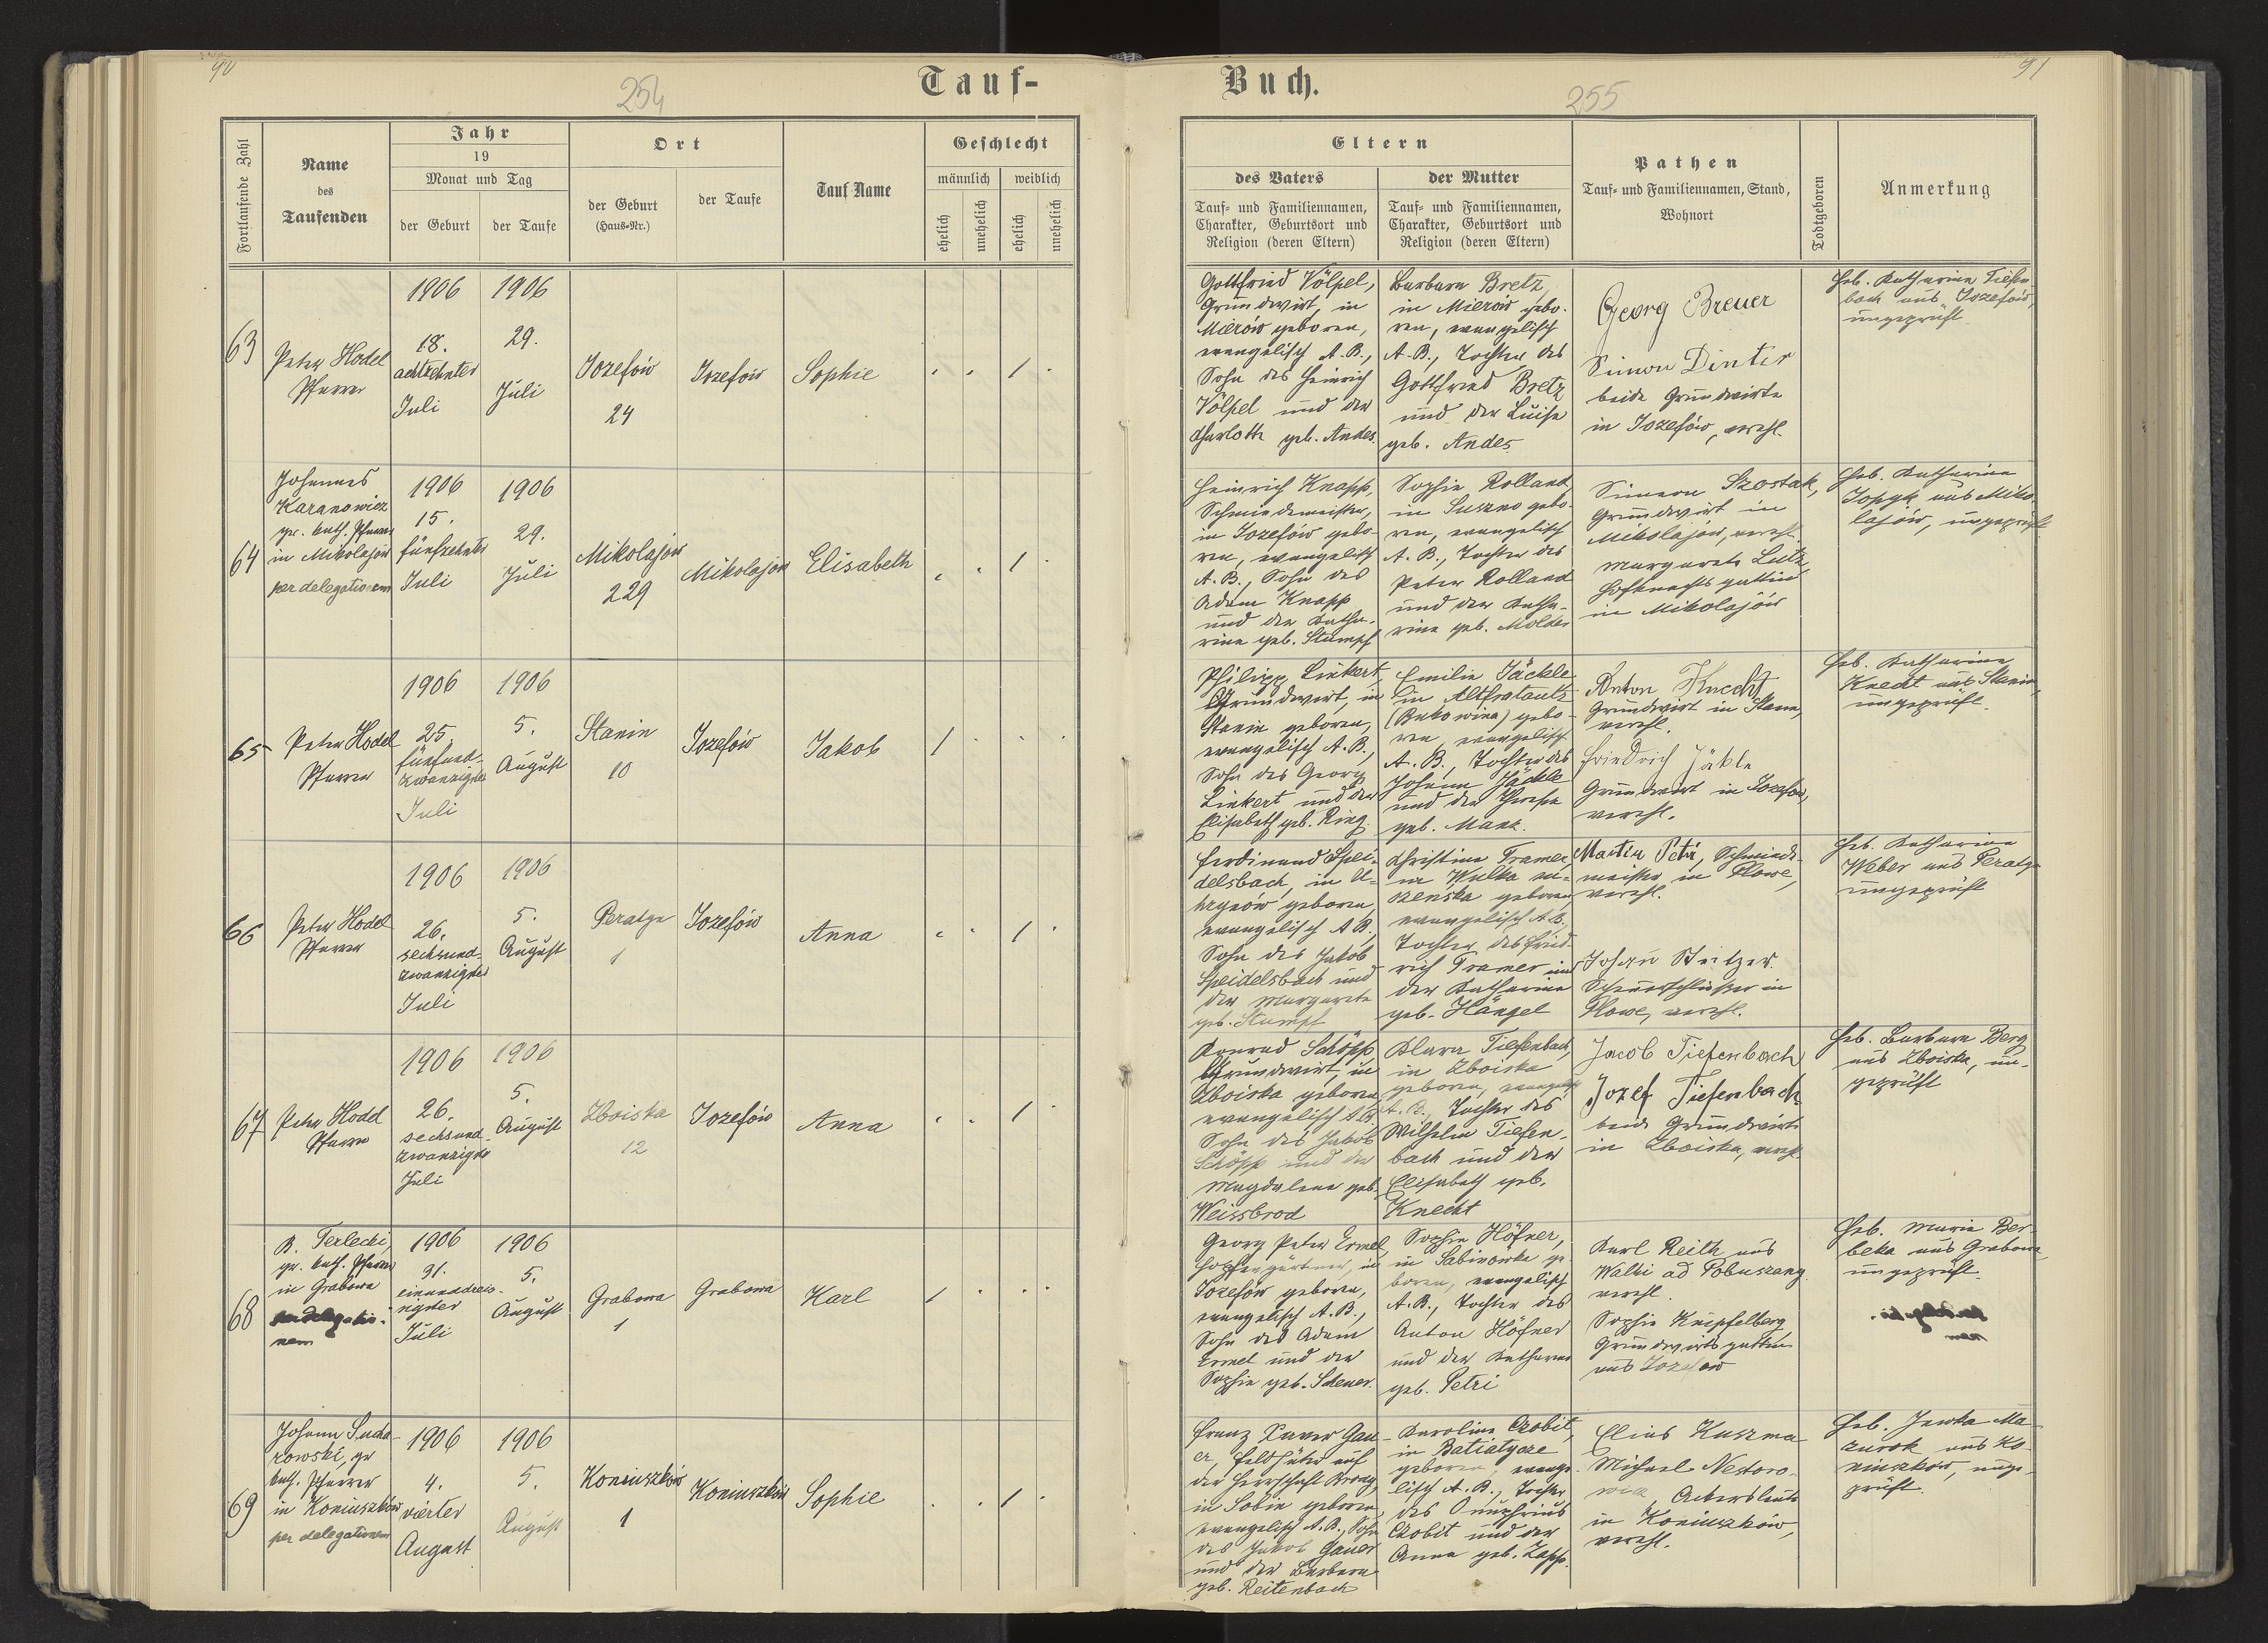 90
254
Tauf-
Fortlaufende Zahl
Name
des
Taufenden
Jahr
19
Monat und Tag
der Geburt
der Taufe
Ort
der Geburt
(Haus-Nr.)
der Taufe
Tauf-Name
Geschlecht
männlich
weiblich
ehelich
unehelich
ehelich
unehelich
63
Peter Hodel
Pfarrer
1906
18.
achtzehnter
Juli
1906
29.
Juli
Jozefów
24
Jozefów
Sophie
64
Johannes
Karanowicz
gr. kath. Pfarrer
in Mikolajow
per delegationem
1906
15.
fünfzehnter
Juli
1906
29.
Juli
Mikolajow
229
Mikolajow
Elisabeth
65
Peter Hodel
Pfarrer
1906
25.
fünfund-
zwanzigster
Juli
1906
5.
August
Stanin
10
Jozefów
Jakob
66
Peter Hodel
Pfarrer
1906
26.
sechsund-
zwanzigster
Juli
1906
5.
August
Peratyn
1
Jozefów
Anna
67
Peter Hodel
Pfarrer
1906
26.
sechsund-
zwanzigster
Juli
1906
5.
August
Zboiska
12
Jozefów
Anna
68
B. Terlecki,
gr. kath. Pfarrer
in Grabowa
1906
31.
einunddreis-
sigster
Juli
1906
5.
August
Grabowa
1
Grabowa
Karl
69
Johann Sucha-
rowski, gr.
kath. Pfarrer
in Koniuszków
per delegationem
1906
4.
vierter
August
1906
5.
August
Koniuszków
1
Koniuszków
Sophie
91
255
Buch.
Eltern
des Vaters
Tauf- und Familiennamen,
Charakter, Geburtsort und
Religion (deren Eltern)
der Mutter
Tauf- und Familiennamen,
Charakter, Geburtsort und
Religion (deren Eltern)
Pathen
Tauf- und Familiennamen, Stand,
Wohnort
Todtgeboren
Anmerkung
Gottfried Völpel,
Grundwirt, in
Mierów geboren,
evangelisch A.B.,
Sohn des Heinrich
Völpel und der
Charlotte geb. Andes.
Barbara Bretz,
in Mierów gebo-
ren, evangelisch
A.B., Tochter des
Gottfried Bretz
und der Luise
geb. Andes
Georg Breuer
Simon Dinter
beide Grundwirte
in Jozefów, verehl.
Heb. Katharina Tiefen-
bach aus Jozefów,
ungeprüft.
Heinrich Knapp,
Schmiedemeister,
in Jozefów gebo-
ren, evangelisch
A.B., Sohn des
Adam Knapp
und der Katha-
rine geb. Stumpf
Sophie Rolland,
in Suszno gebo-
ren, evangelisch
A.B., Tochter des
Peter Rolland
und der Katha-
rine geb. Molder
Simeon Szostak,
Grundwirt in
Mikolajow, verehl.
Margarete Lutz,
Hofknechtsgattin
in Mikolajów
Heb. Katharina
aus Miko-
lajów, ungeprüft
Philipp Linkert,
Grundwirt, in
Stanin geboren,
evangelisch A.B.,
Sohn des Georg
Linkert und der
Elisabeth geb. Ring.
Emilie Jäckle
in Altfratautz
(Bukowina) gebo-
ren, evangelisch
A.B., Tochter des
Johann Jäckle
und der Theresia
geb. Manz.
Anton Knecht
Grundwirt in Stanin,
verehl.
Friedrich Jäkle
Grundwirt in Jozefow,
verehl.
Heb. Katharina
Knecht aus Stanin,
ungeprüft.
Ferdinand Spei-
delsbach, in
geboren,
evangelisch A.B.,
Sohn des Jakob
Speidelsbach und
der Margarete
geb. Stumpf
Christine Kramer
in Wulka su-
szenska geboren
evangelisch A.B.
Tochter des Fried-
rich Kramer und
der Katharina
geb. Hängel
Martin Petri, Schmiede-
meister in Plowe,
verehl.
Johann
in
Plowe, verehl.
Heb. Katharina
Weber aus Peratyn
ungeprüft
Konrad Schöpp
Grundwirt, in
Zboiska geboren,
evangelisch A.B.
Sohn des Jakob
Schöpp und der
Magdalena geb.
Weissbrod
Klara Tiefenbach,
in Zboiska
geboren, evangelisch
A.B., Tochter des
Wilhelm Tiefen-
bach und der
Elisabeth geb.
Knecht
Jacob Tiefenbach
Jozef Tiefenbach
beide Grundwirte
in Zboiska, verehl.
Heb. Barbara Berg
aus Zboiska, un-
geprüft
Georg Peter Ermel,
Hopfengärtner, in
Jozefow geboren,
evangelisch A.B.,
Sohn des Adam
Ermel und der
Sophie geb. Scheuer.
Sophie Höfner,
in Sabinowka ge-
boren, evangelisch
A.B., Tochter des
Anton Höfner
und der Katharina
geb. Petri
Karl Reith aus
Walki ad Pobuszany
verehl.
Sophie Knipfelberg
Grundwirtsgattin
aus Jozefow
Heb. Maria Ber-
beka aus Grabowa
ungeprüft.
Franz Xaver Gau-
er, Feldhüter auf
der Herrschaft
in geboren,
evangelisch A.B., Sohn
des Jakob Gauer
und der Barbara
geb. Reitenbach
Karolina Czobit,
in Batiatycze
geboren, evange-
lisch A.B., Tochter
des Onuphrius
Czobit und der
Anna geb. Zapp.
Elias Kuszma
Michael Nestoro-
wicz, Ackersleute
in Koniuszków,
verehl.
Heb. Jewka Ma-
zurok aus Ko-
niuszków, unge-
prüft.